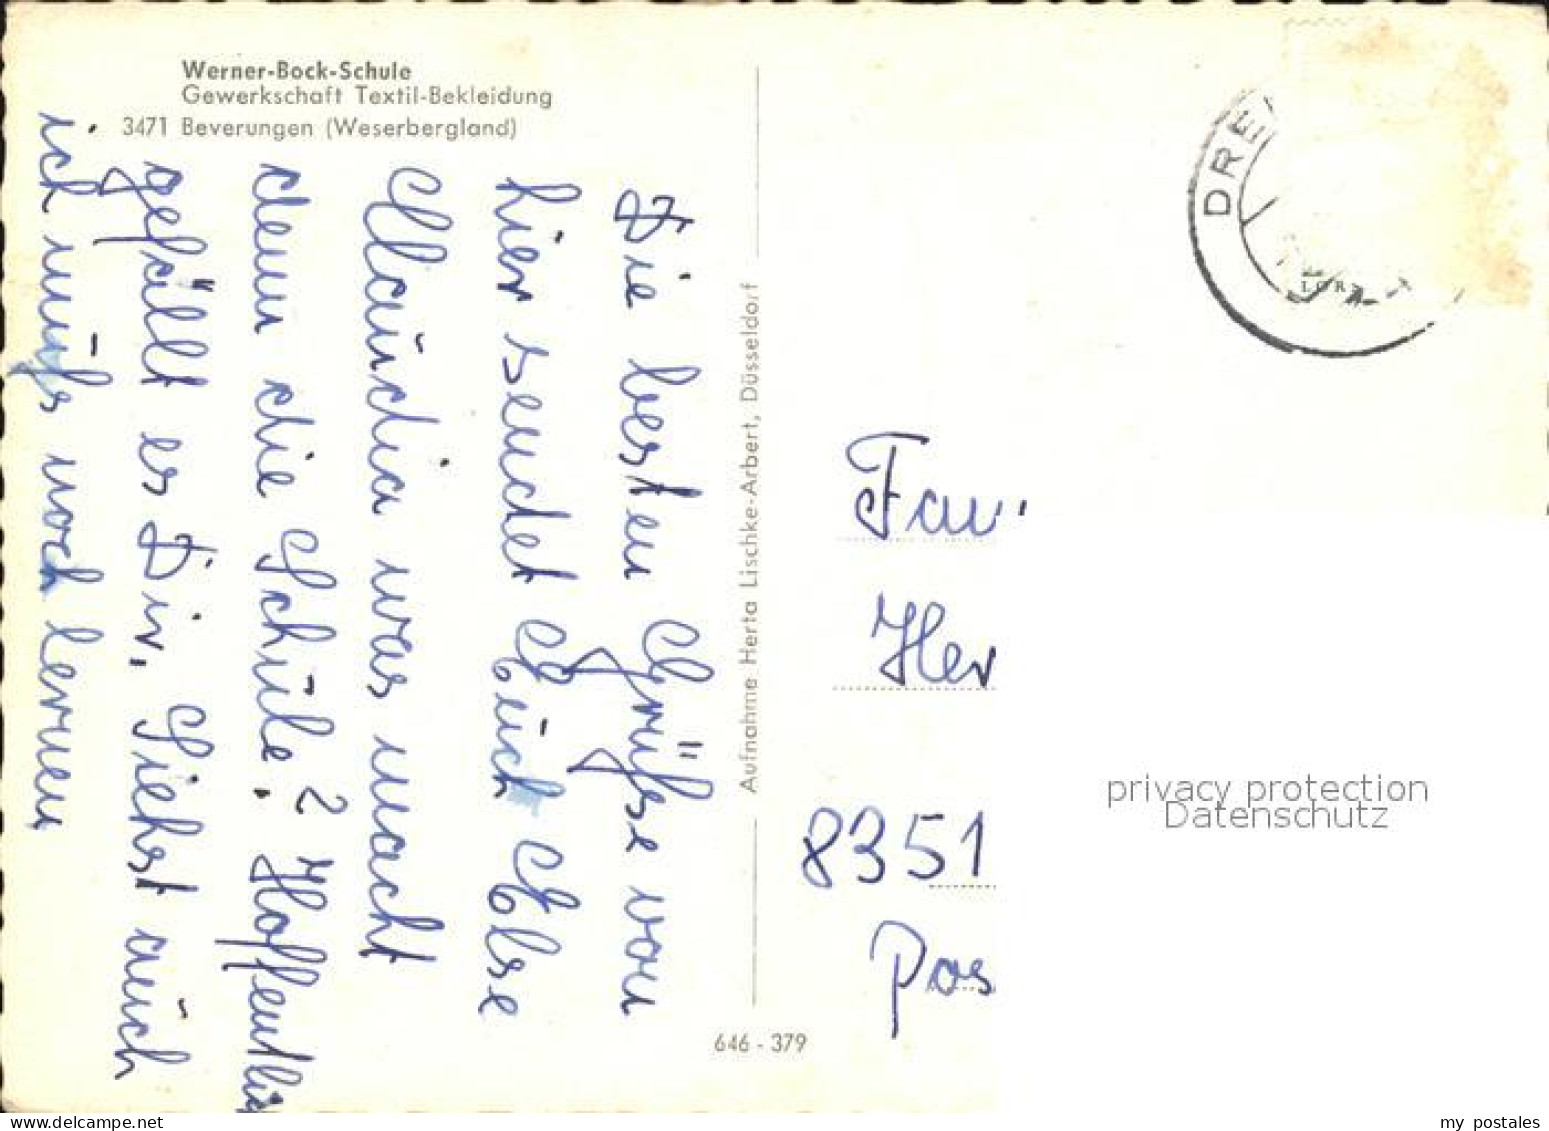 Werner-Bock-Schule
Gewerkschaft Textil-Bekleidung
3471 Beverungen (Weserbergland)
Die besten Grüße von
hier sendet Euch Else
Claudia was macht
denn die Schule? Hoffentlich
gefällt es Dir. Siehst auch
ich muß noch lernen
Aufnahme Herta Lischke-Arbert, Düsseldorf
646 - 379
DRE
Fam
Her
8351
Pos
privacy protection
Datenschutz
www.delcampe.net
my postales